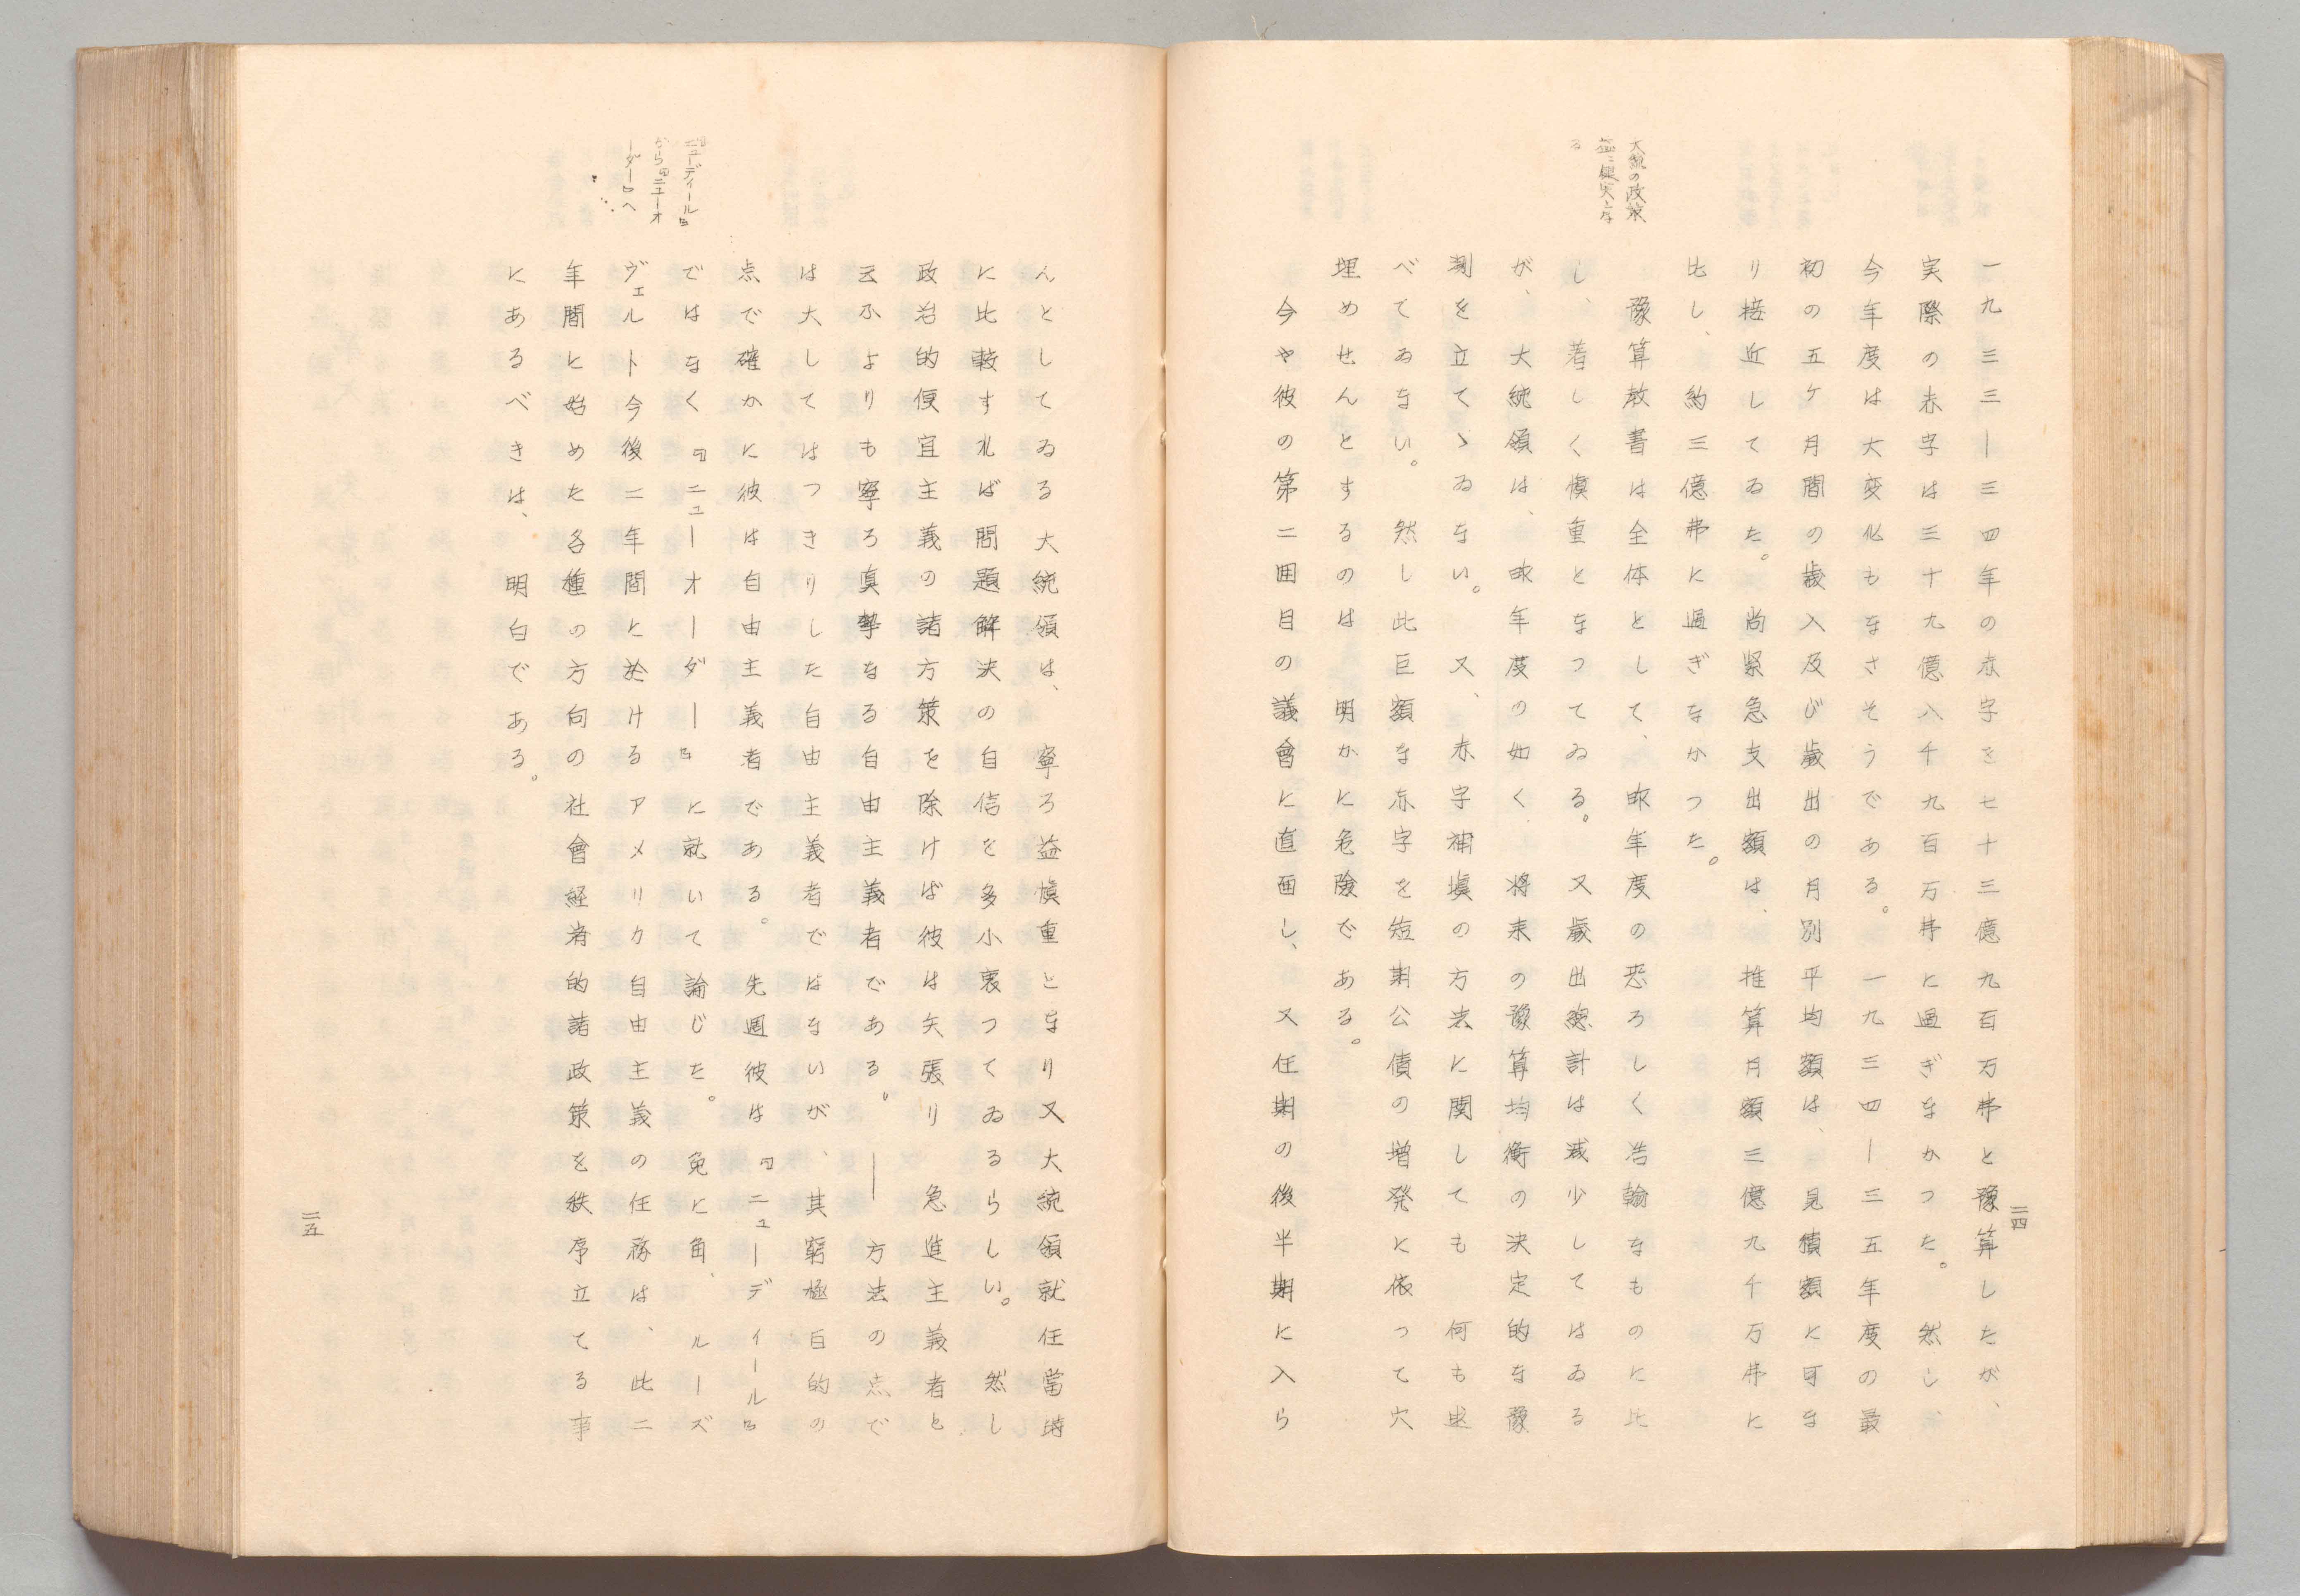 二四
大統の政策
益々堅実とな
る
一九三三―三四年の赤字を七十三億九百万弗と豫算したが、
実際の赤字は三十九億八千九百万弗に過ぎなかつた。然し、
今年度は大変化もなさそうである。一九三四―三五年度の最
初の五ケ月間の歳入及び歳出の月別平均額は、見積額に可な
り接近してゐた。尚緊急支出額は、推算月額三億九千万弗に
比し、約三億弗に過ぎなかつた。
豫算教書は全体として、昨年度の恐ろしく浩翰なものに比
し、著しく慎重となつてゐる。又歳出總計は減少してはゐる
が、大統領は、昨年度の如く、将来の豫算均衡の決定的な豫
測を立てゝゐない。又、赤字補塡の方法に関しても何も述
べてゐない。然し此巨額な赤字を短期公債の増発に依つて穴
埋めせんとするのは明かに危險である。
今や彼の第二囬目の議會に直面し、又任期の後半期に入ら
んとしてゐる大統領は、寧ろ益慎重となり又大統領就任當時
に比較すれば問題解決の自信を多小裏つてゐるらしい。然し
政治的便宜主義の諸方策を除けば彼は矢張り急進主義者と
云ふよりも寧ろ真摯なる自由主義者である。――方法の点で
は大してはつきりした自由主義者ではないが、其窮極目的の
点で確かに彼は自由主義者である。先週彼は『ニューディール』
ではなく『ニューオーダー』に就いて論じた。兔に角、ルーズ
ヴェルト今後二年間に於けるアメリカ自由主義の任務は、此二
年間に始めた各種の方向の社會経済的諸政策を秩序立てる事
にあるべきは、明白である。
『ニューディール』
から『ニューオ
ーダー』へ
二五